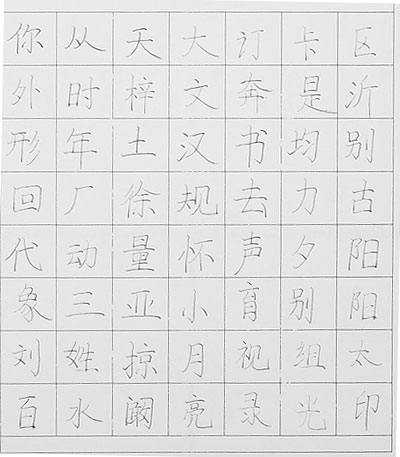 你从天大订卡区
外时梓文奔是沂
形年土汉书均别
回厂徐规去力古
代动量怀声夕阳
象三亚小育别阳
刘姓掠月祝组太
百水阚亮录光印